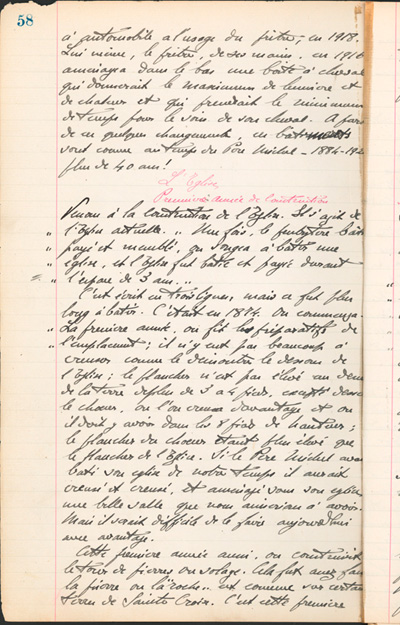 58
à automobile à l'usage du prêtre, en 1918.
Lui même, le prêtre, de ses mains, en 1916
aménagea dans le bas une boîte à cheval
qui donnerait le maximum de lumière et
de chaleur et qui prendrait le minimum
de temps pour le soin de son cheval. A part
de ces quelques changements, ces bâtiments
sont comme au temps du Père Michel - 1884-192
plus de 40 ans!
L'Eglise
Première année de Construction
Venons à la construction de l'Eglise. Il s'agit de
l'Eglise actuelle. " Une fois, le presbytère bâti
" payé et meublé, on songea à bâtir une
" église, et l'Eglise fut bâtie et payée durant
" l'espace de 3 ans...
C'est écrit en trois lignes, mais ce fut plus
long à bâtir. C'était en 1874. On commença.
" La première année, on fit les préparatifs de
" l'emplacement; il n'y eut pas beaucoup à
creuser comme le démontre le dessous de
l'Eglise; le plancher n'est pas élevé au dessus
de la terre de plus de 3 à 4 pieds, excepté dessous
le choeur, où l'on creusa davantage et où
il doit y avoir dans les 8 pieds de hauteur;
le plancher du choeur étant plus élevé que
le plancher de l'Eglise. Si le Père Michel avait
bâti son église de notre temps il aurait
creusé et creusé, et aménagé sous son église
une belle salle que nous aimerions à avoir.
Mais il serait difficile de le faire aujourd'hui
avec avantage.
Cette première année aussi, on construisit
le tour de pierres ou solage. Cela fut assez
la pierre ou la "roche" est comme sur certain
terrain de Sainte Croix. C'est cette première